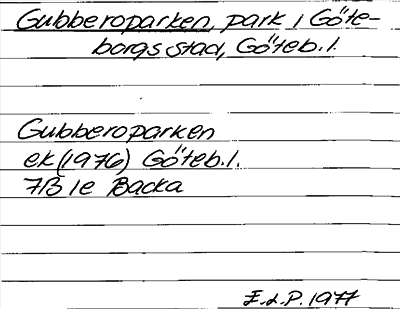 Gubberoparken, park i Göte-
borgs stad, Göteb.l.
Gubberoparken
ek (1976) Göteb.l.
7B 1e Backa
E.L.P. 1977